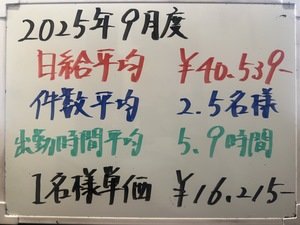 2025年9月度
日給平均 ¥40.539-
件数平均 2.5名様
出勤時間平均 5.9時間
1名様単価 ¥16.215-